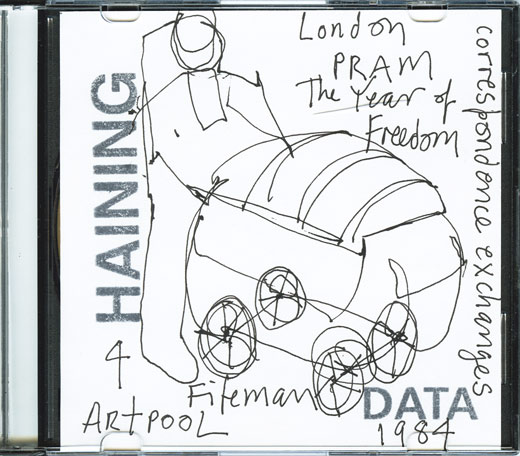 London
PRAM
The Year of
Freedom
correspondence exchanges
HAINING
4
ARTPOOL
Fifeman
DATA
1984